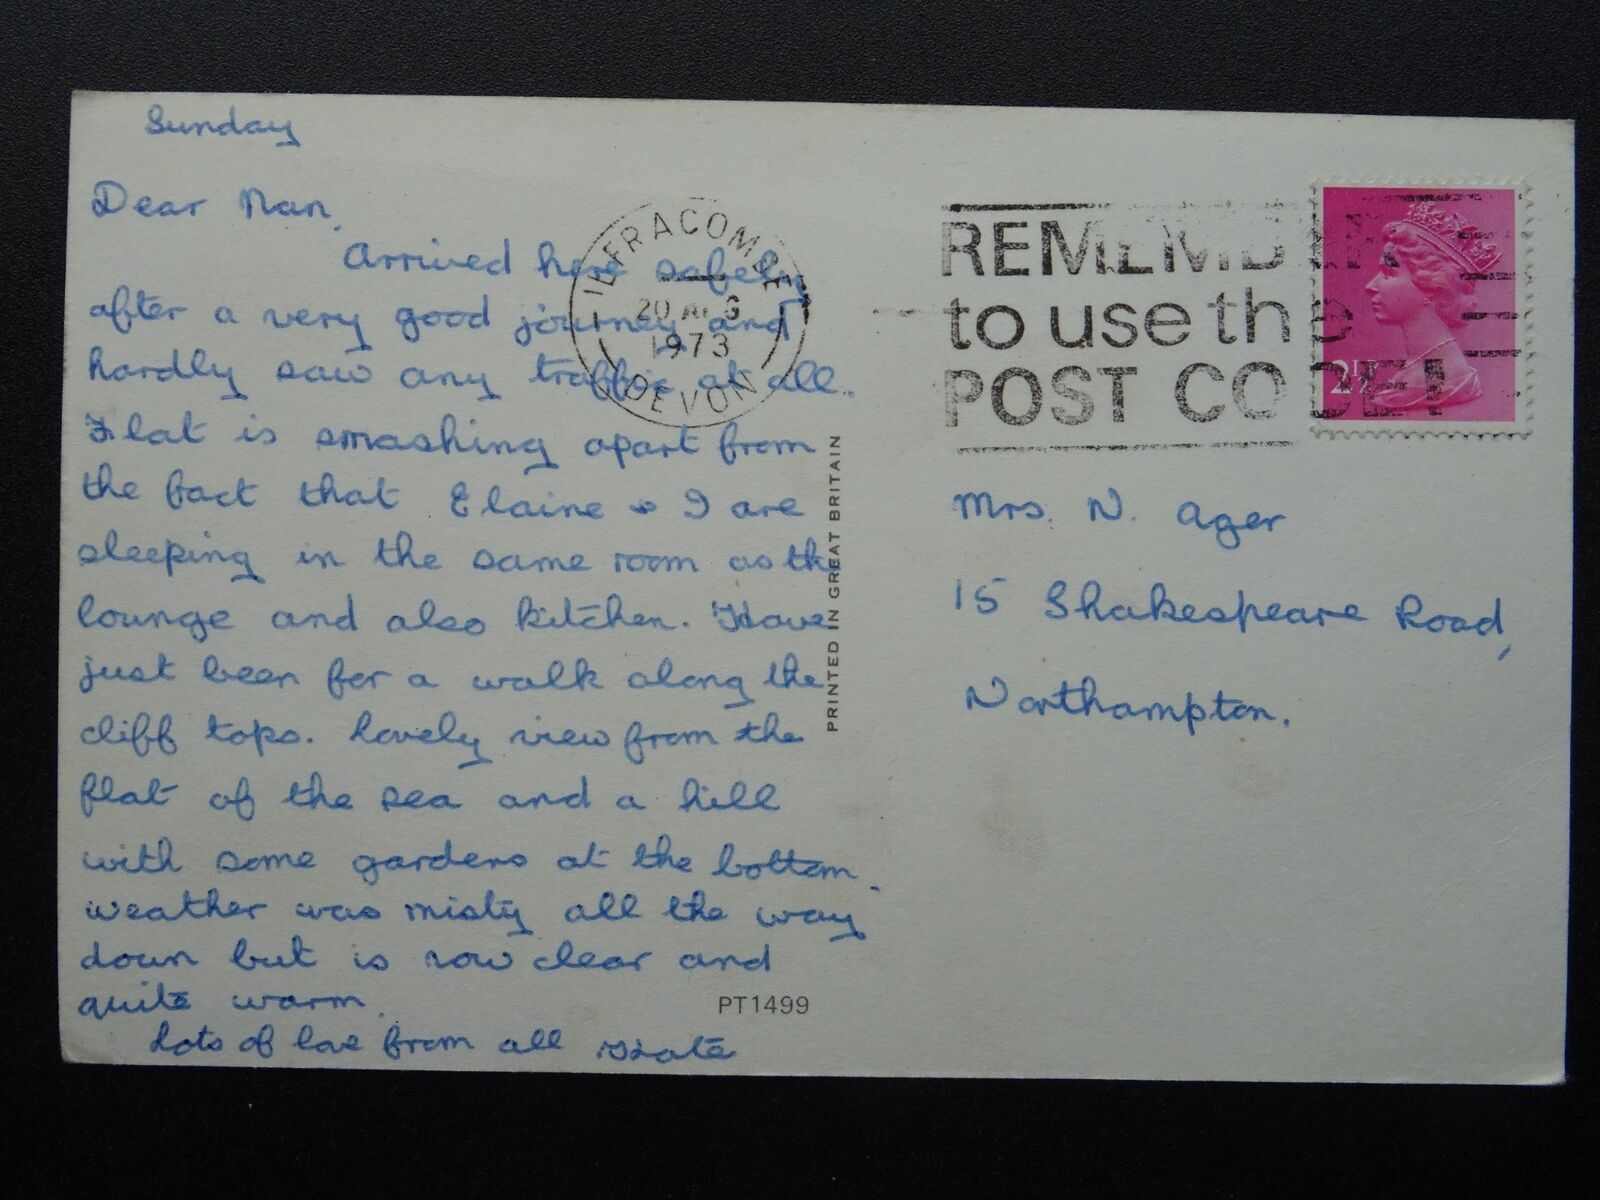 Sunday
Dear Nan,
Arrived here safely
after a very good journey and
hardly saw any traffic at all.
Flat is smashing apart from
the fact that Elaine & I are
sleeping in the same room as the
lounge and also kitchen. Have
just been for a walk along the
cliff tops. Lovely view from the
flat of the sea and a hill
with some gardens at the bottom.
Weather was misty all the way
down but is now clear and
quite warm.
Lots of love from all
ILFRACOMBE
1973
DEVON
PRINTED IN GREAT BRITAIN
PT1499
REMEMBER
to use the
POST CODE
2½
Mrs. N. Ager
15 Shakespeare Road,
Northampton.